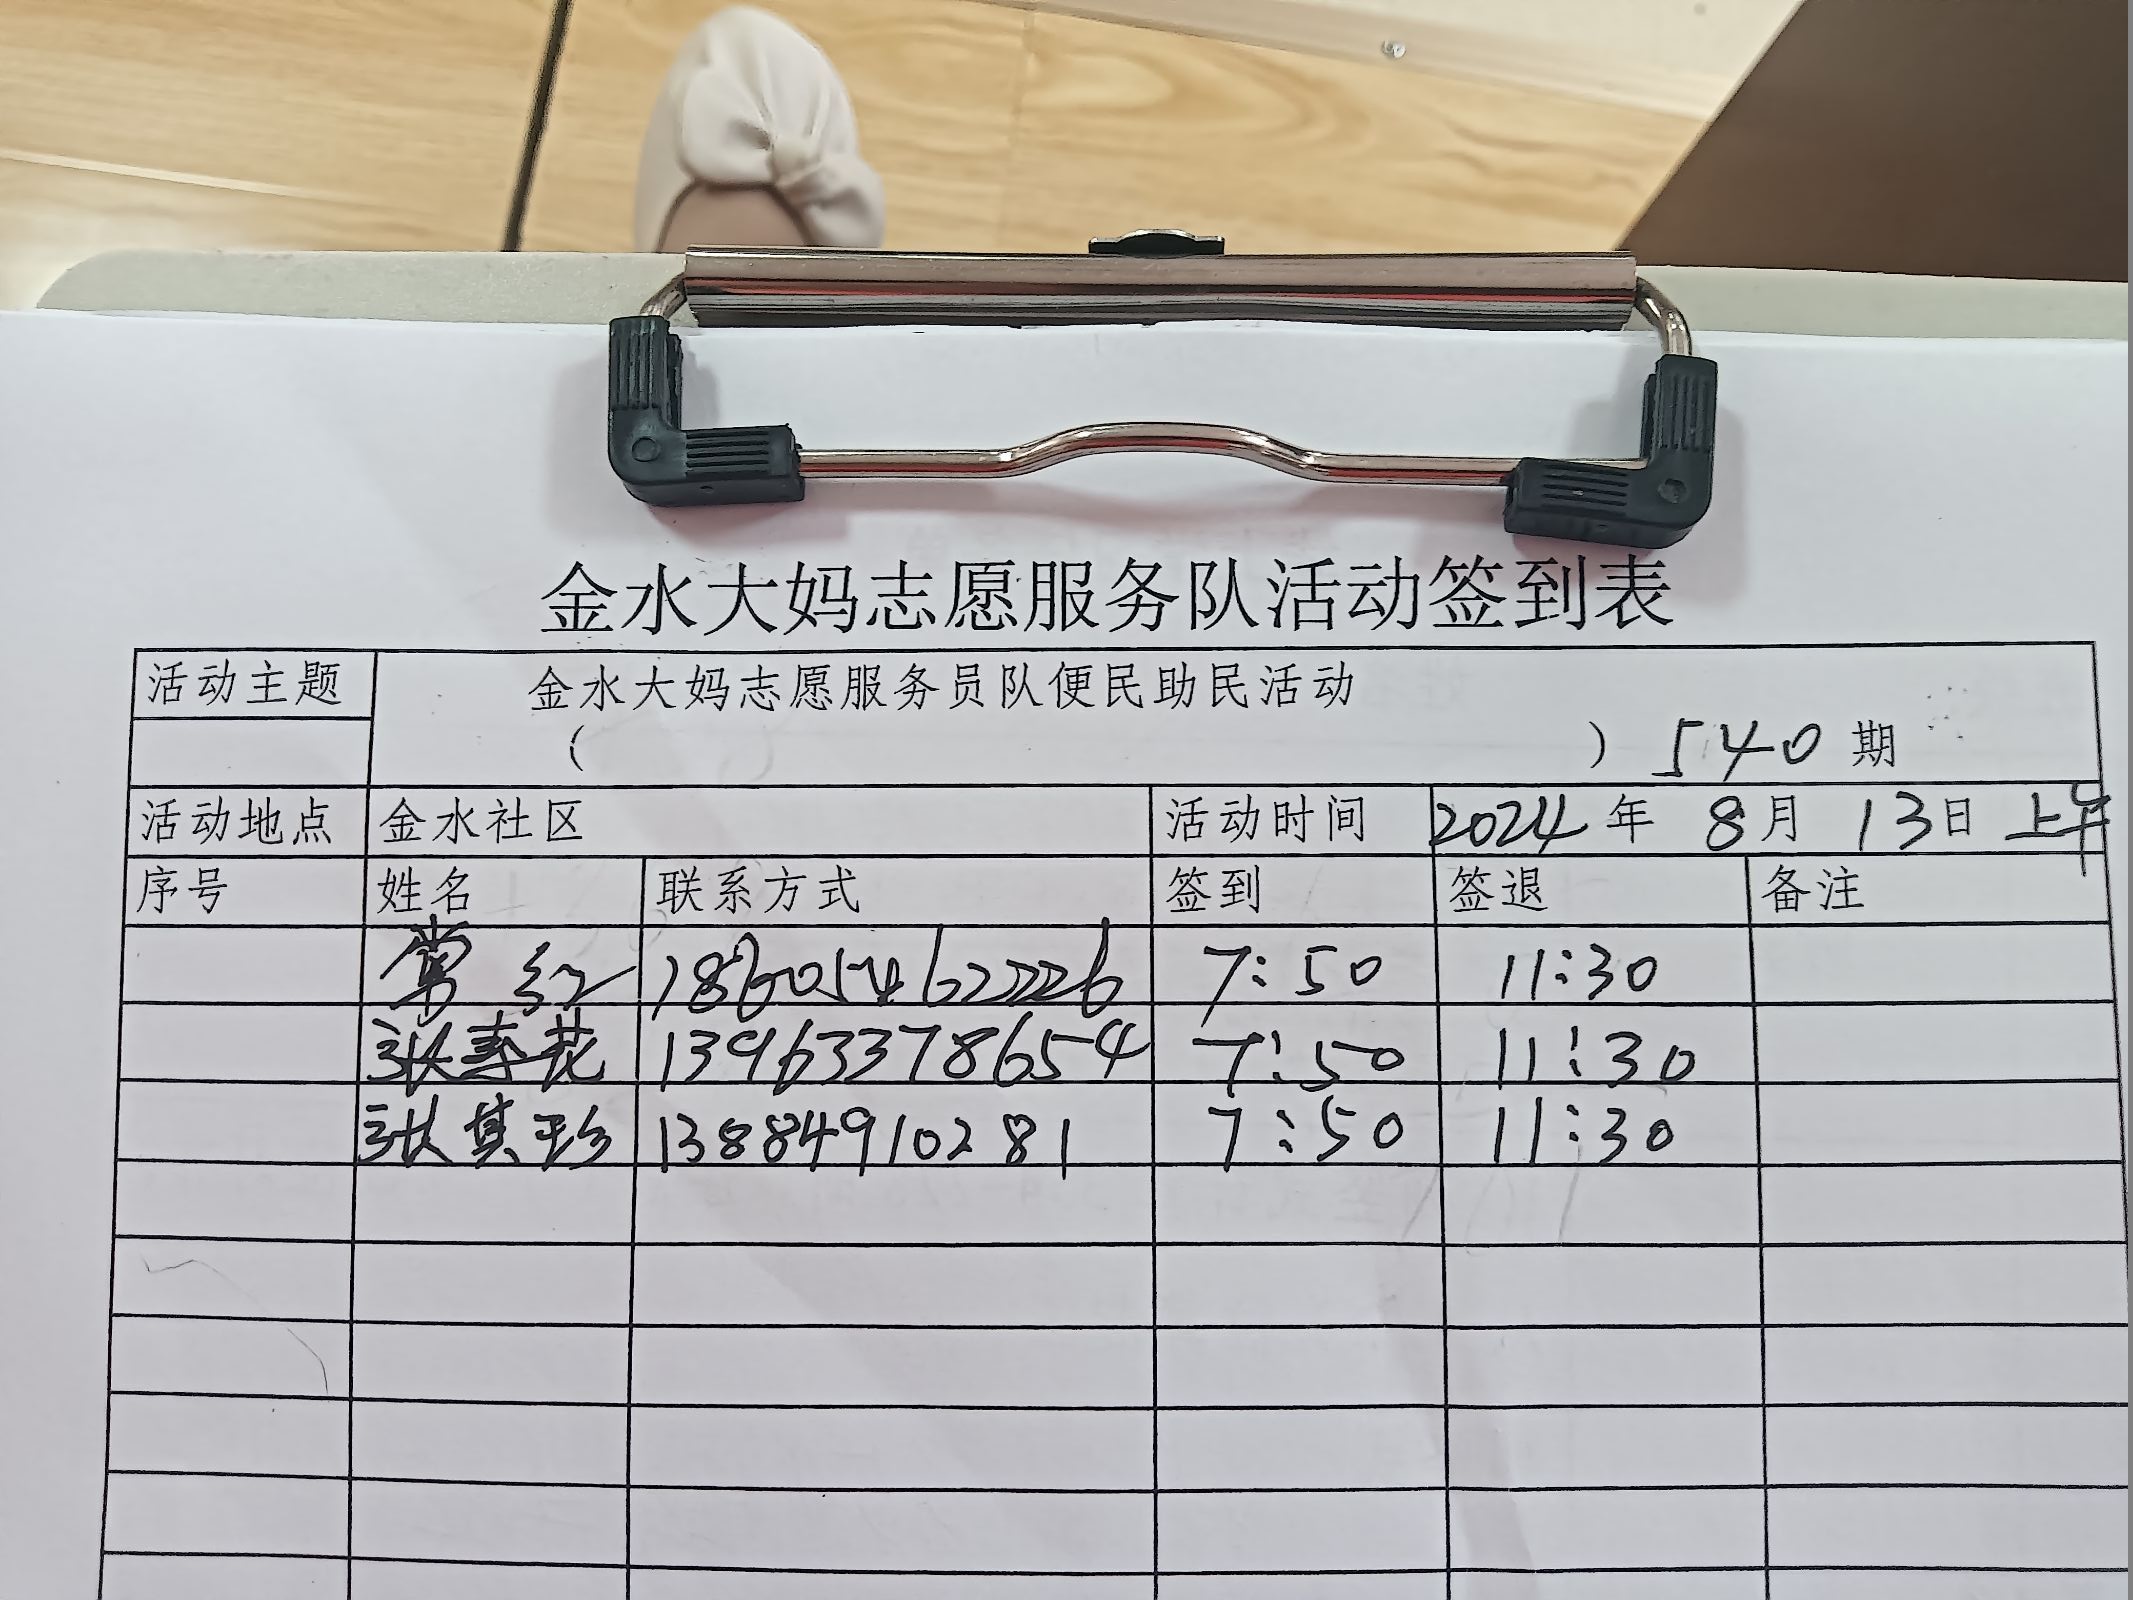 金水大妈志愿服务队活动签到表
活动主题 金水大妈志愿服务员队便民助民活动
( ) 540 期
活动地点 金水社区 活动时间 2024 年 8 月 13 日 上午
序号 姓名 联系方式 签到 签退 备注
常红 7:50 11:30
张春花 13963378654 7:50 11:30
张其珍 13884910281 7:50 11:30